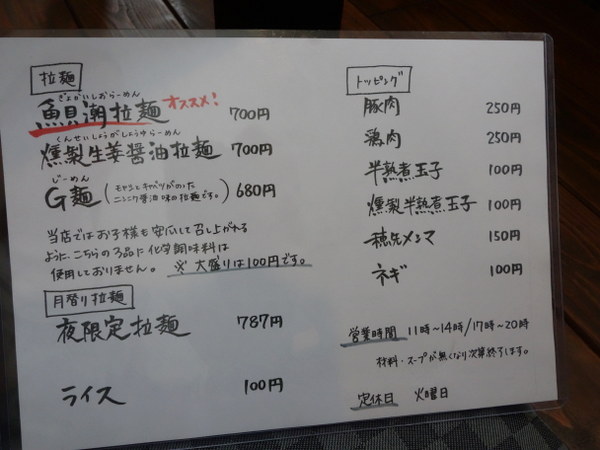 拉麺
ぎょかいしおらーめん
魚貝潮拉麺 オススメ! 700円
くんせいしょうがしょうゆらーめん
燻製生姜醤油拉麺 700円
じーめん
G麺 (モヤシとキャベツがのった ニンニク醤油味の拉麺です。) 680円
当店ではお子様も安心して召し上がれる
ように、こちらの3品に化学調味料は
使用しておりません。 ※大盛りは100円です。
月替り拉麺
夜限定拉麺 787円
ライス 100円
トッピング
豚肉 250円
鶏肉 250円
半熟煮玉子 100円
燻製半熟煮玉子 100円
穂先メンマ 150円
ネギ 100円
営業時間 11時~14時/17時~20時
材料・スープが無くなり次第終了します。
定休日 火曜日